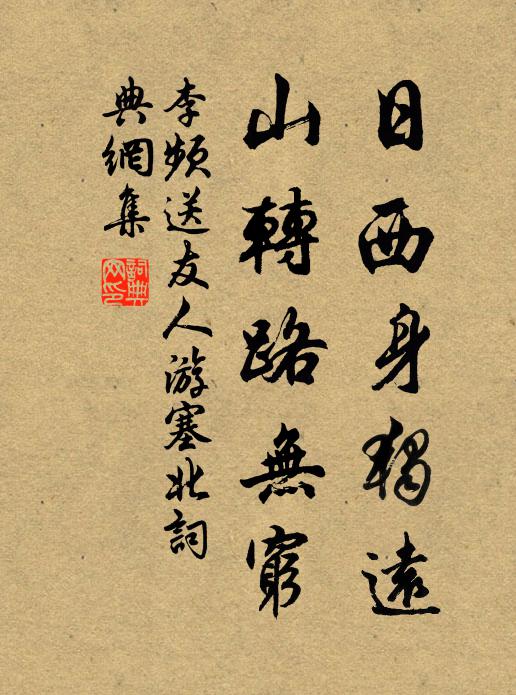 日西身獨遠
山轉路無窮
李頻送友人游塞北詞
典網集
詞典網印